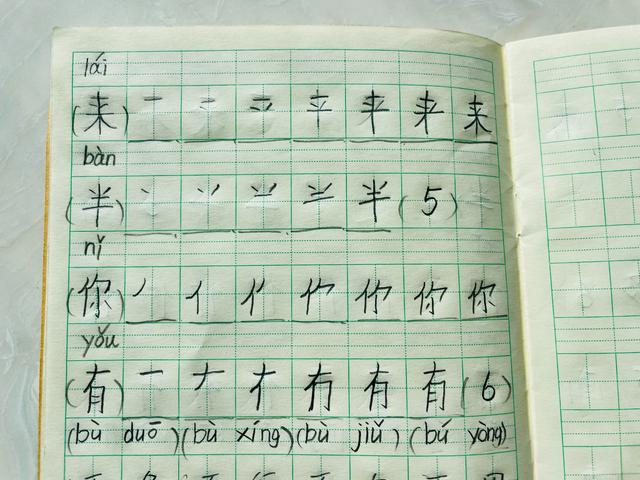 lái
(来) 一 二 平 来
bàn
(半) 丶 丷 半 (5)
nǐ
(你) 丿 亻 你 你
yǒu
(有) 一 ナ 冇 有 有 (6)
(bù duō)(bù xíng)(bù jiǔ)(bú yòng)